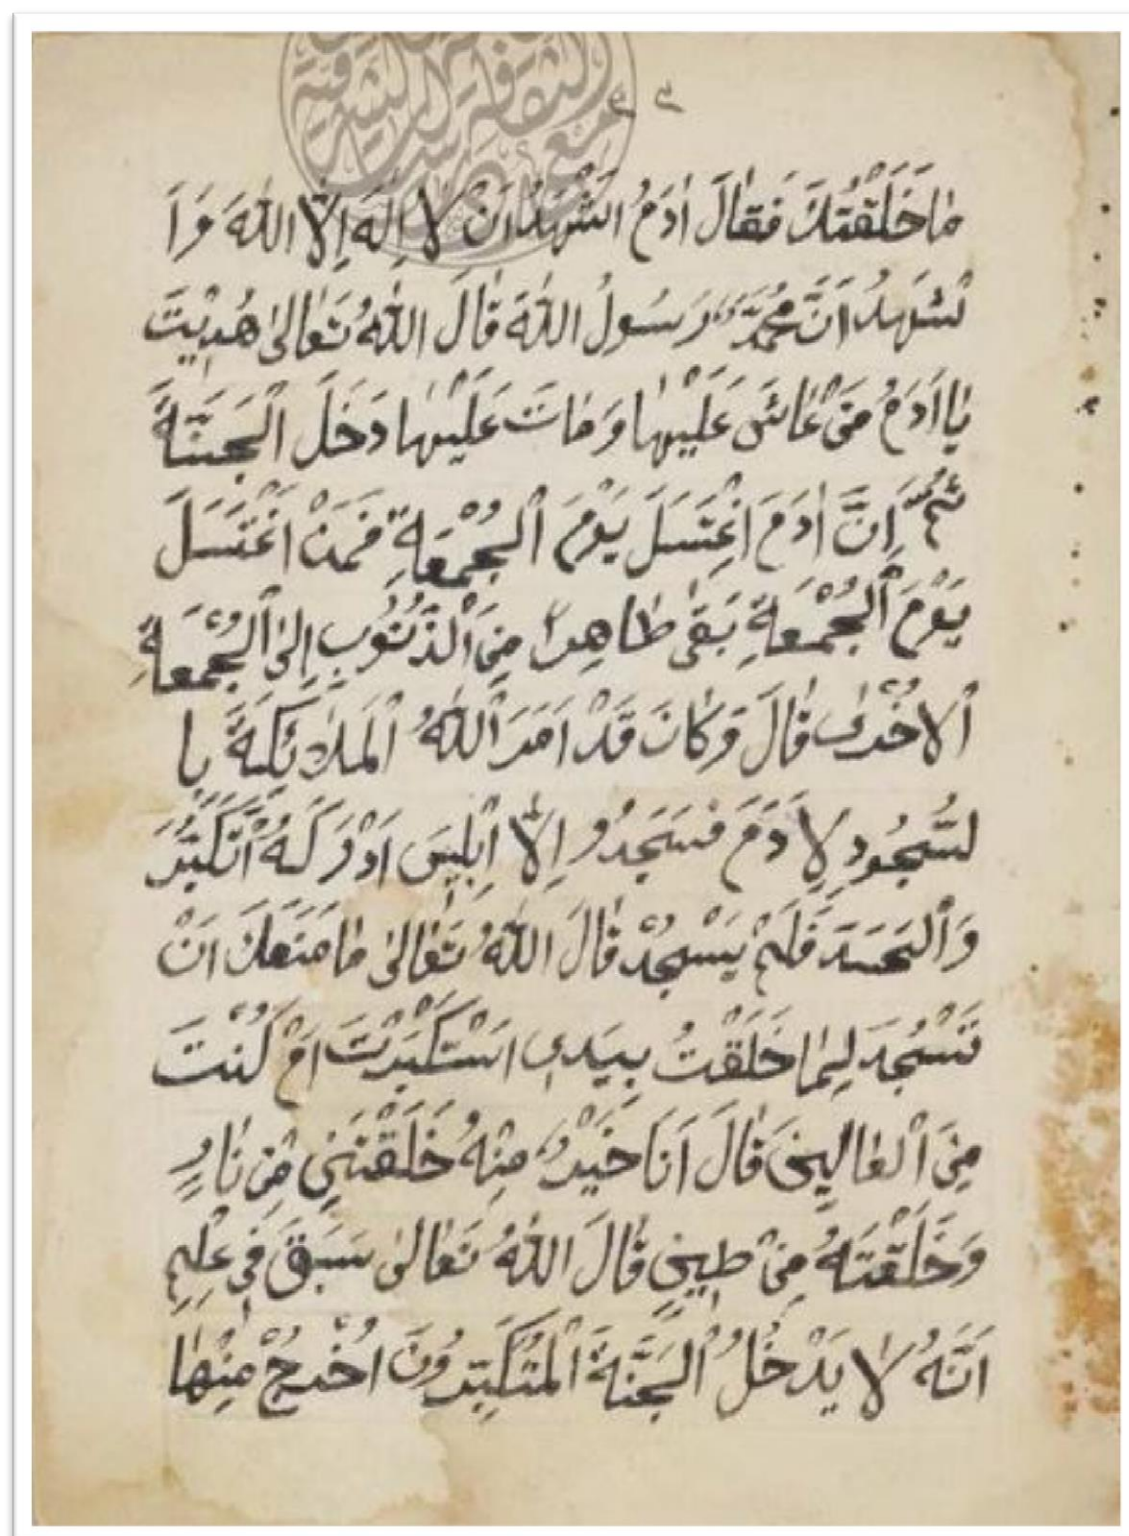 ٣٣
مَا خَلَقْتُكَ فَقَالَ اٰدَمُ اَشْهَدُ اَنْ لَا اِلٰهَ اِلَّا اللّٰهَ وَ اَ
شْهَدُ اَنَّ مُحَمَّدً رَسُولُ اللّٰهَ قَالَ اللّٰهُ تَعَالىٰ هُدِيْتَ
يٰا اَدَمُ مَنْ عَاشَ عَلَيْهٰا وَمَاتَ عَلَيْهٰا دَخَلَ الْجَنَّةَ
ثُمَّ اِنَّ اٰدَمَ اغْتَسَلَ يَوْمَ الْجُمْعَةِ فَمَنْ اغْتَسَلَ
يَوْمَ الْجُمْعَةِ بَقٰى طَاهِراً مِنَ الْذُنُوبِ اِلىٰ الْجُمْعَةِ
الْاُخْرىٰ قَالَ وَكَانَ قَدْ اَمَرَ اللّٰهُ الْمَلَائِكَةَ بِا
لسُّجُودِ لِاَدَمَ فَسَجَدُو اِلّٰا اِبْلِيسَ اَدْرَكَهُ الْتَكَبُّرَ
وَالْحَسَدَ فَلَمْ يَسْجُدْ قَالَ اللّٰهُ تَعَالىٰ مَا مَنَعَكَ اَنْ
تَسْجُدَ لِمَا خَلَقْتُ بِيَدِى اسْتَكْبَرْتَ اَمْ كُنْتَ
مِنَ الْعَالِينَ قَالَ اَنَا خَيْرٌ مِنْهُ خَلَقْتَنِي مِنْ نَارٍ
وَخَلَقْتَهُ مِنْ طِينٍ قَالَ اللّٰهُ تَعَالىٰ سَبَقَ فِي عِلْمِ
اَنَّهُ لَا يَدْخُلُ الْجَنَّةَ الْمُتَكَبِّرُونَ اُخْرُجْ مِنْهٰا